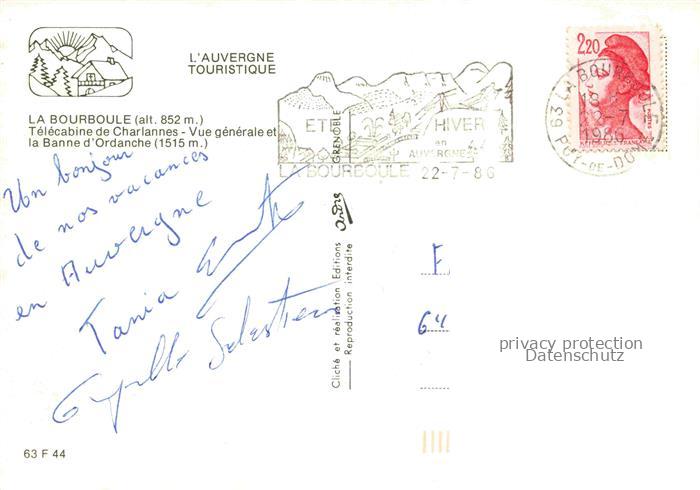 L'AUVERGNE
TOURISTIQUE
LA BOURBOULE (alt. 852 m.)
Télécabine de Charlannes - Vue générale et
la Banne d'Ordanche (1515 m.)
ETE
HIVER
en
AUVERGNE
LA BOURBOULE 22-7-86
2,20
63 LA BOURBOULE
22-7
1986
PUY-DE-DOME
Un bonjour
de nos vacances
en Auvergne
Tania
Sebastien
GRENOBLE
Cliché et réalisation Editions
Reproduction interdite
André
F
64
privacy protection
Datenschutz
63 F 44